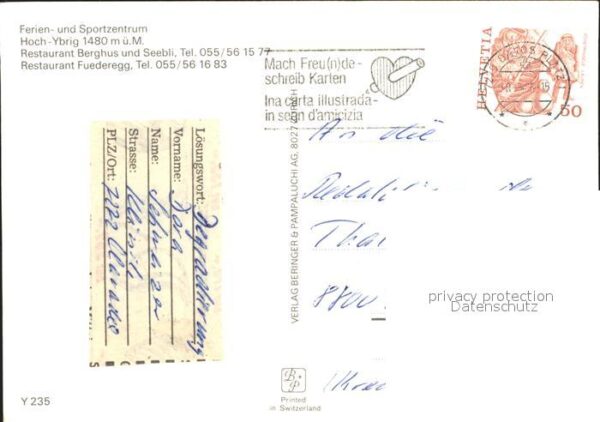 Ferien- und Sportzentrum
Hoch-Ybrig 1480 m ü.M.
Restaurant Berghus und Seebli, Tel. 055/56 15 77
Restaurant Fuederegg, Tel. 055/56 16 83
Mach Freu(n)de-
schreib Karten
Ina carta illustrada-
in segn d'amicizia
HELVETIA
50
Lösungswort: Degradierung
Vorname: Dora
Name: Schwarzer
Strasse:
PLZ/Ort:
VERLAG BERINGER & PAMPALUCHI AG, 8027 ZÜRICH
An die
8800
privacy protection
Datenschutz
B P
Printed
in Switzerland
Y 235